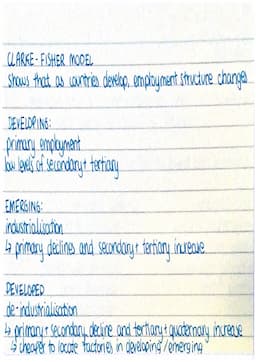 CLARKE-FISHER MODEL
Shows that as countries develop, employment structure changes
DEVELOPING:
primary employment
low levels of secondary + tertiary
EMERGING:
industrialisation
↳ primary declines and secondary + tertiary increase
DEVELOPED
de-industrialisation
↳ primary + secondary decline and tertiary + quaternary increase
↳ cheaper to locate factories in developing/emerging